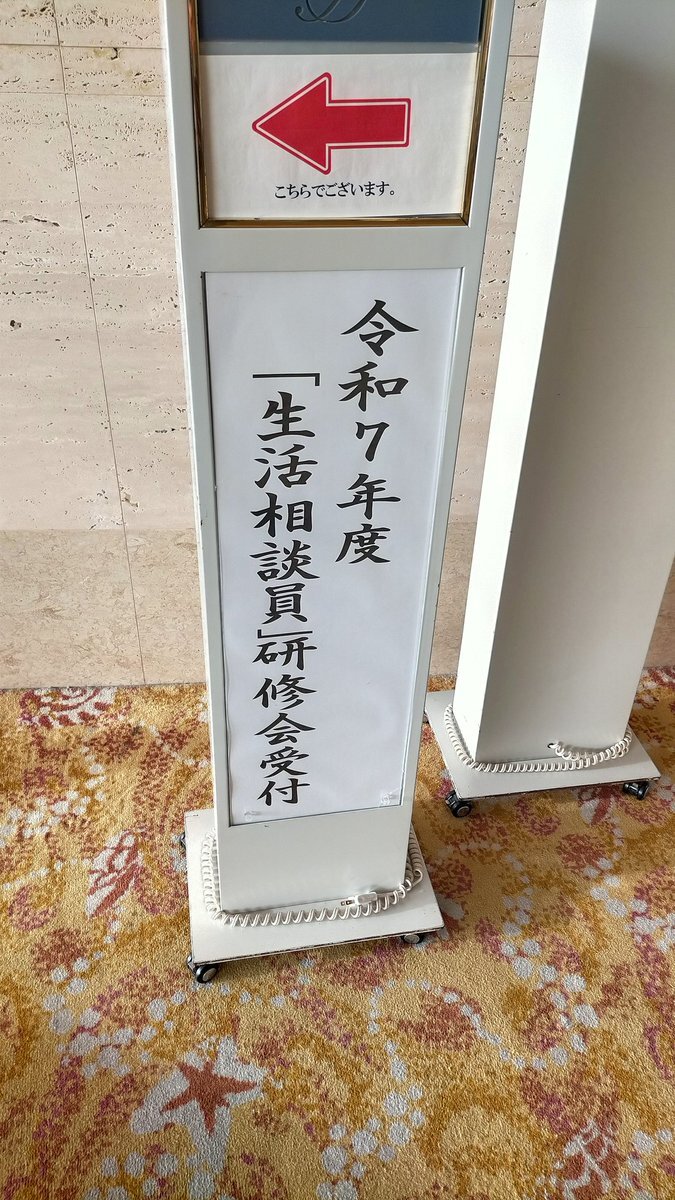 こちらでございます。
令和7年度
「生活相談員」研修会受付